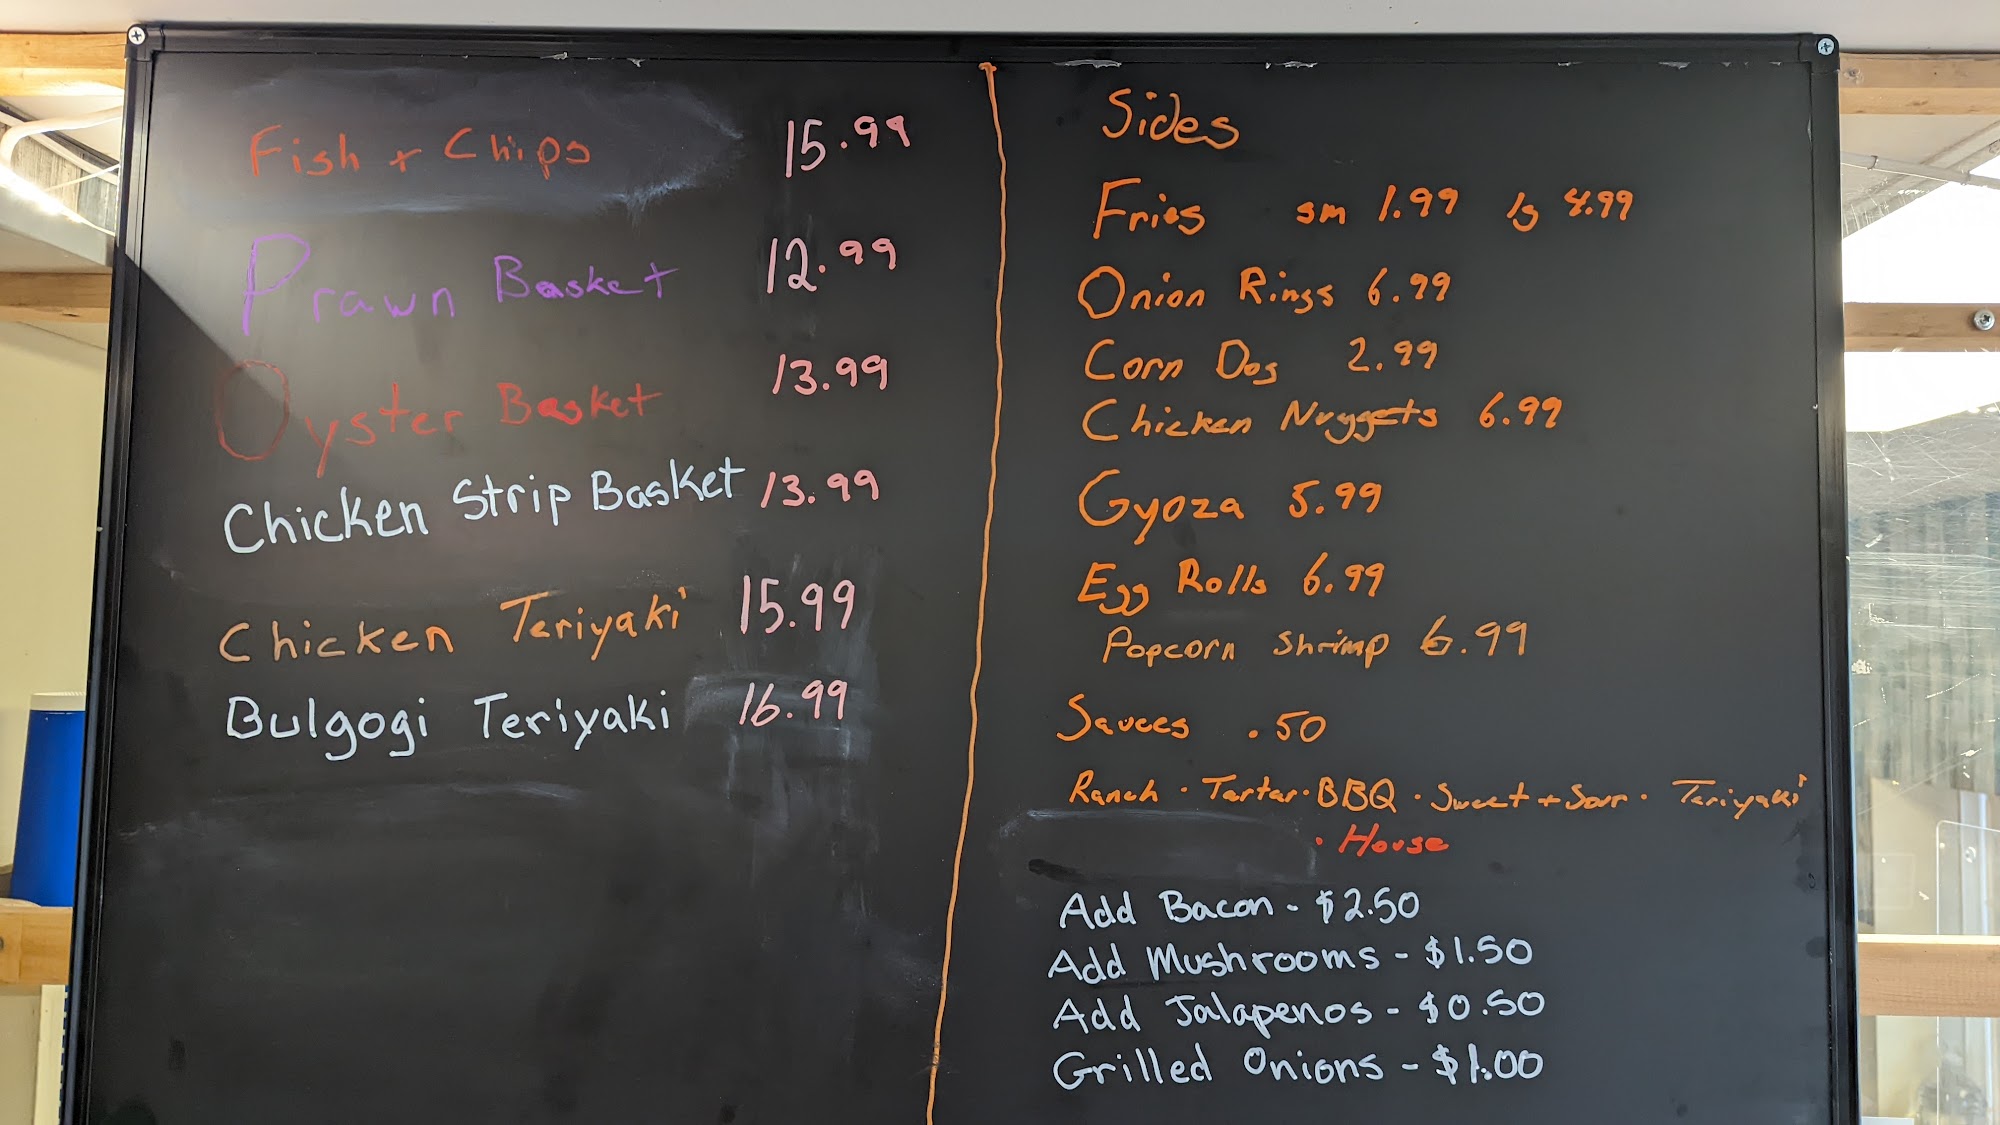 Fish + Chips 15.99
Prawn Basket 12.99
Oyster Basket 13.99
Chicken Strip Basket 13.99
Chicken Teriyaki 15.99
Bulgogi Teriyaki 16.99
Sides
Fries sm 1.99 lg 4.99
Onion Rings 6.99
Corn Dog 2.99
Chicken Nuggets 6.99
Gyoza 5.99
Egg Rolls 6.99
Popcorn Shrimp 6.99
Sauces .50
Ranch · Tartar · BBQ · Sweet + Sour · Teriyaki
· House
Add Bacon - $2.50
Add Mushrooms - $1.50
Add Jalapenos - $0.50
Grilled Onions - $1.00